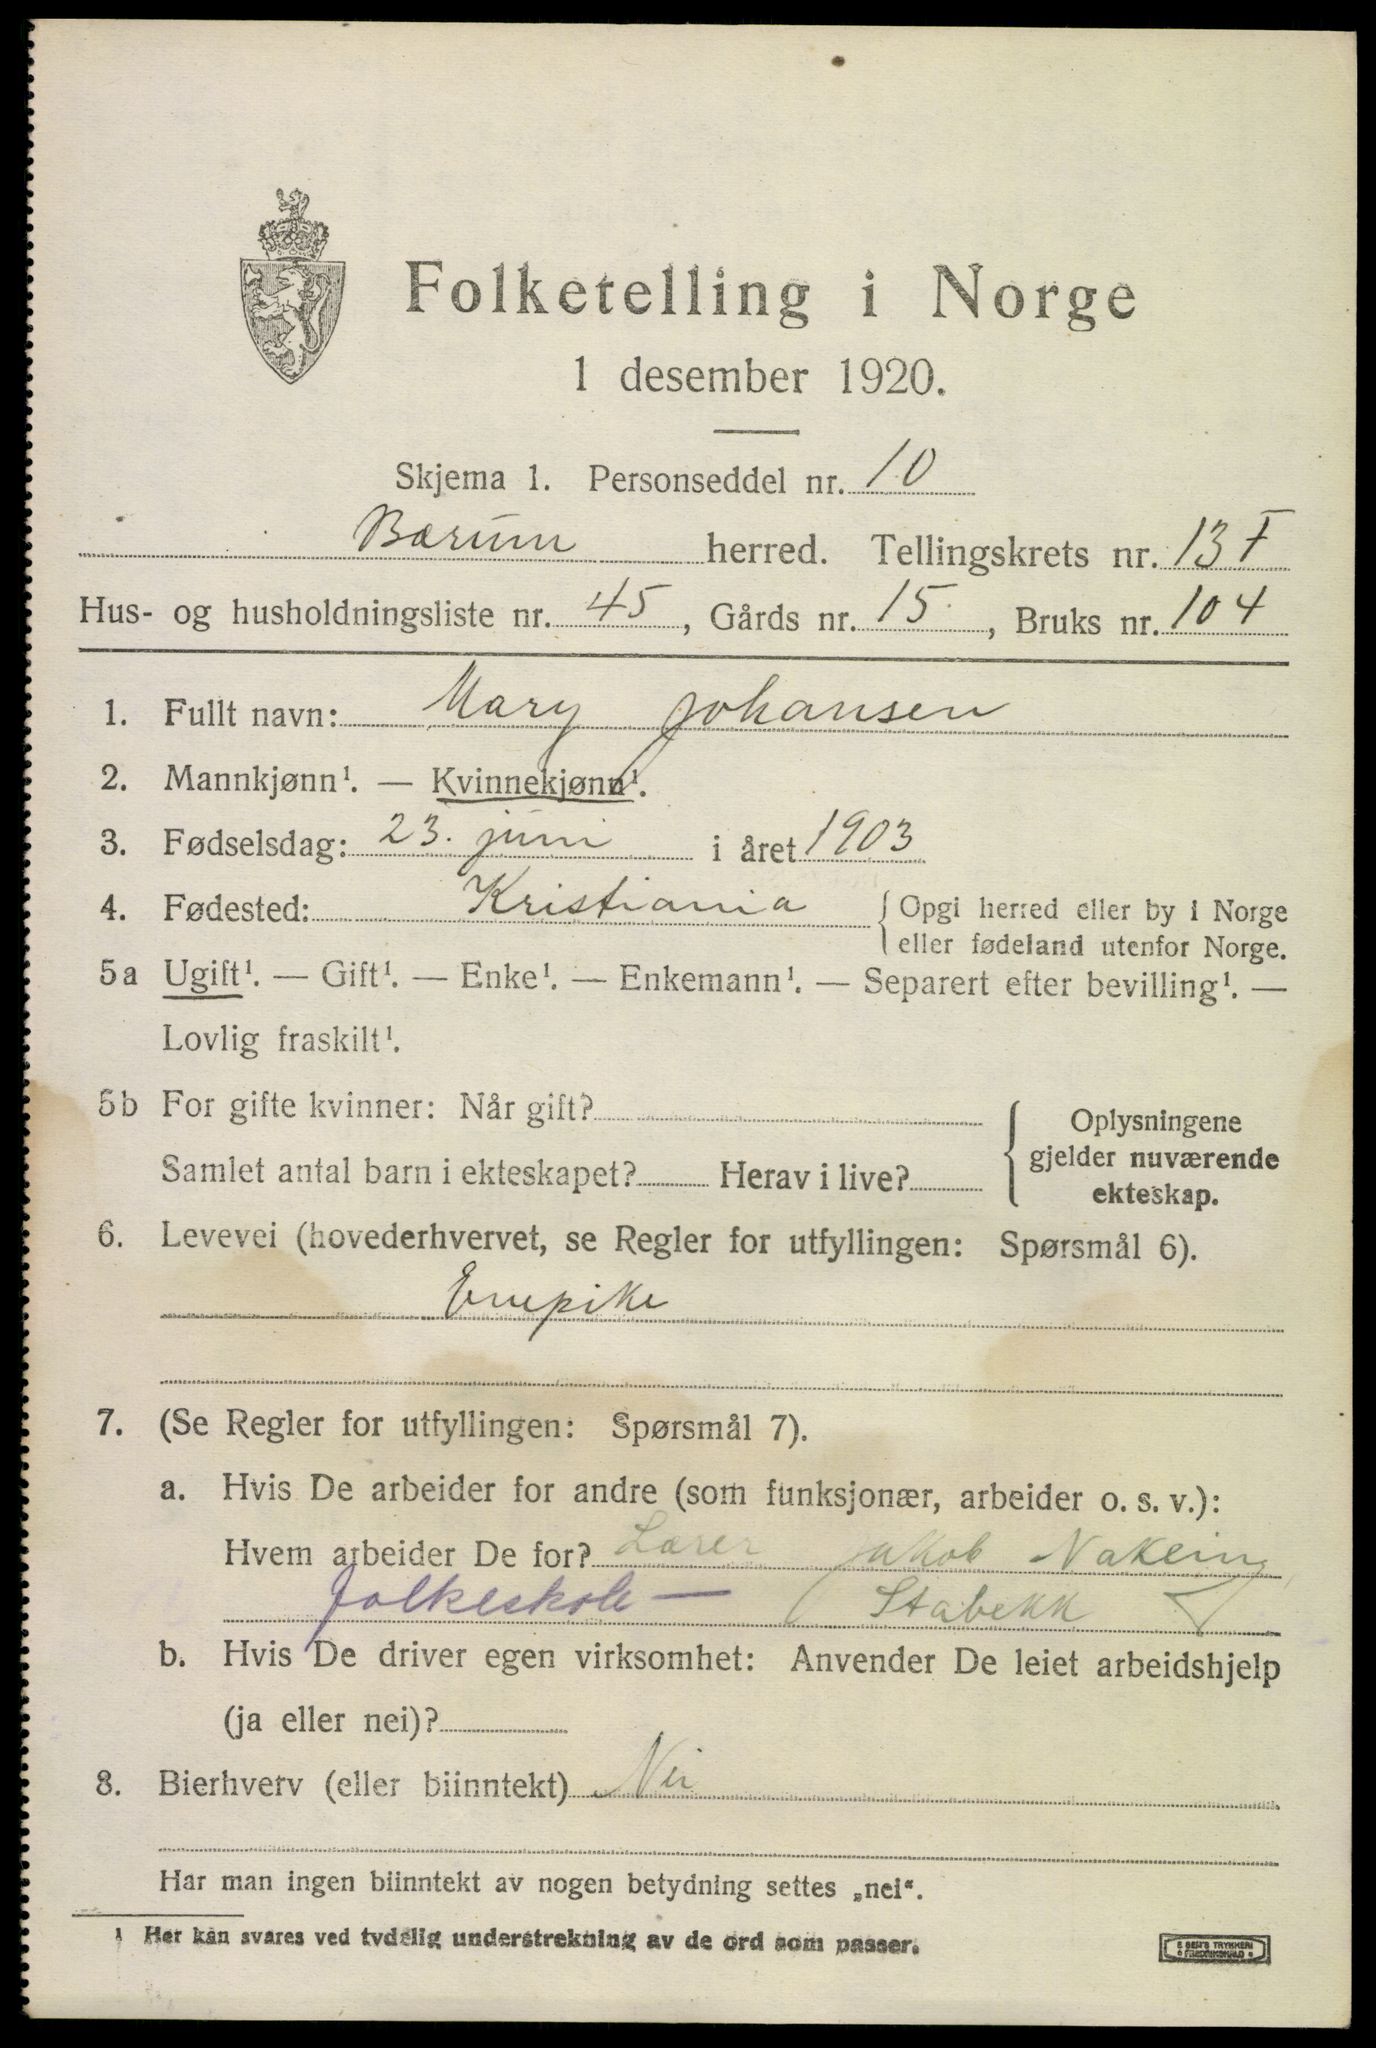 Folketelling i Norge
1 desember 1920.
Skjema 1. Personseddel nr. 10
Bærum herred. Tellingskrets nr. 13 I
Hus- og husholdningsliste nr. 45, Gårds nr. 15, Bruks nr. 104
1. Fullt navn: Mary Johansen
2. Mannkjønn¹. — Kvinnekjønn¹.
3. Fødselsdag: 23. juni i året 1903
4. Fødested: Kristiania { Opgi herred eller by i Norge
eller fødeland utenfor Norge.
5a Ugift¹. — Gift¹. — Enke¹. — Enkemann¹. — Separert efter bevilling¹. —
Lovlig fraskilt¹.
5b For gifte kvinner: Når gift? { Oplysningene
gjelder nuværende
Samlet antal barn i ekteskapet? Herav i live?
ekteskap.
6. Levevei (hovederhvervet, se Regler for utfyllingen: Spørsmål 6).
Enepike
7. (Se Regler for utfyllingen: Spørsmål 7).
a. Hvis De arbeider for andre (som funksjonær, arbeider o. s. v.):
Hvem arbeider De for? Lærer Jakob
folkeskole — Stabekk
b. Hvis De driver egen virksomhet: Anvender De leiet arbeidshjelp
(ja eller nei)?
8. Bierhverv (eller biinntekt) Nei
Har man ingen biinntekt av nogen betydning settes „nei“.
¹ Her kan svares ved tydelig understrekning av de ord som passer.
E SEM'S TRYKKERI
FREDRIKSHALD